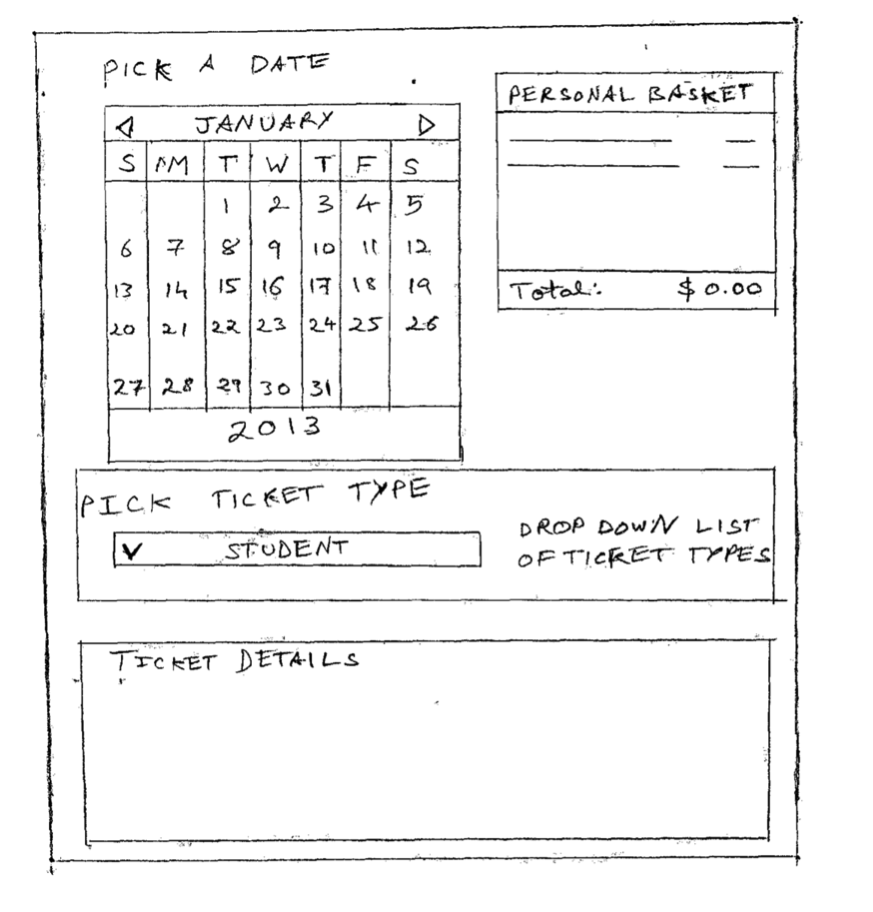 PICK A DATE
JANUARY
S M T W T F S
1 2 3 4 5
6 7 8 9 10 11 12
13 14 15 16 17 18 19
20 21 22 23 24 25 26
27 28 29 30 31
2013
PERSONAL BASKET
Total: $0.00
PICK TICKET TYPE
STUDENT
DROP DOWN LIST
OF TICKET TYPES
TICKET DETAILS